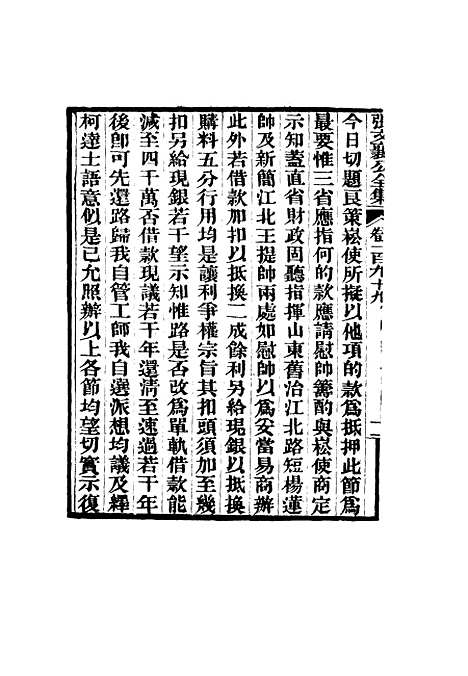 張文襄公全集 卷一百九十九 二
今日切題良策崧使所擬以他項的款爲抵押此節爲
最要惟三省應指何的款應請慰帥籌酌與崧使商定
示知蓋直省財政固聽指揮山東舊治江北路短楊蓮
帥及新簡江北王提帥兩處如慰帥以爲妥當易商辦
此外若借款加扣以抵換二成餘利另給現銀以抵換
購料五分行用均是讓利爭權宗旨其扣頭須加至幾
扣另給現銀若干望示知惟路是否改爲單軌借款能
減至四千萬否借款現議若干年還清至速過若干年
後卽可先還路歸我自管工師我自選派想均議及釋
柯達士語意似是已允照辦以上各節均望切實示復